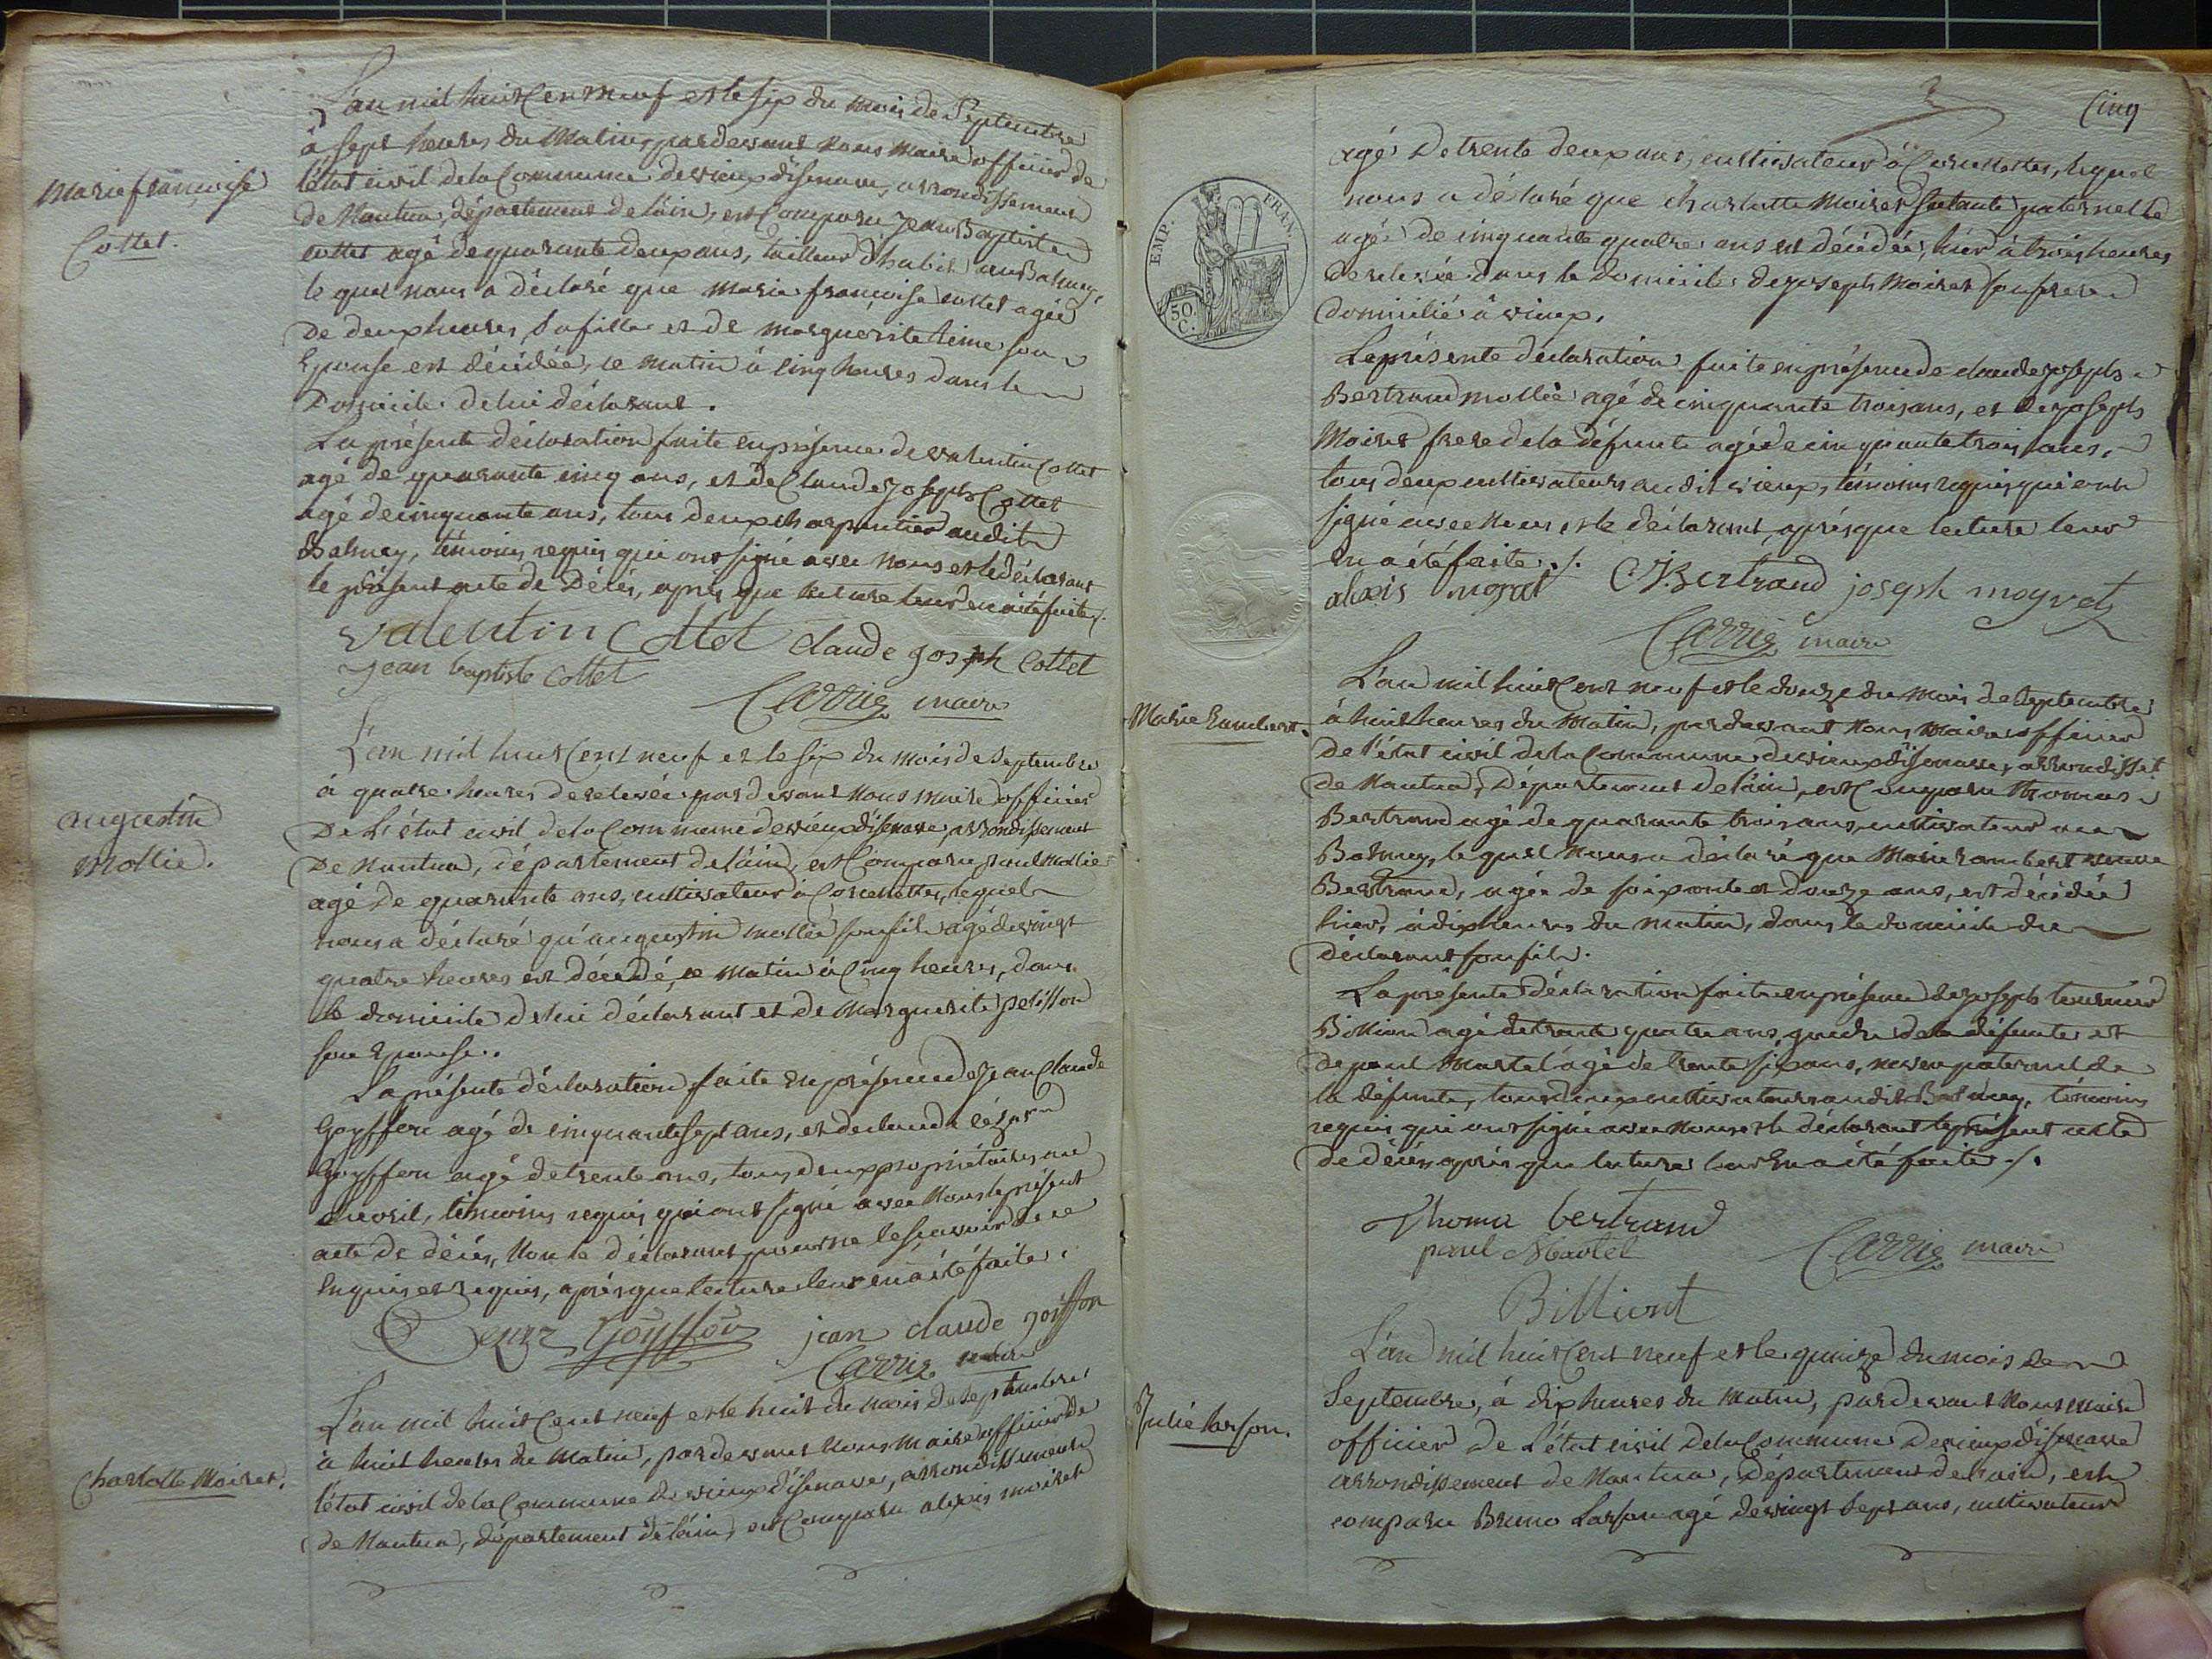 L'an mil huit Cent neuf et le six du mois de Septembre
à sept heures du Matin, pardevant nous Maire officier de
l'état civil de la Commune de vieux disenave, arrondissement
de Nantua, département de l'ain, est Comparu Jean Baptiste
Marie françoise
Cottet.
cottet agé de quarante deux ans, tailleur d'habits au Balmay,
le quel nous a déclaré que Marie françoise cottet agée
De deux heures, sa fille et de Marguerite son
Epouse est décédée, ce matin à Cinq heures dans le
Domicile de lui déclarant.
La présente déclaration faite en présence de valentin Cottet
agé de quarante cinq ans, et de Claude Joseph Cottet
agé de cinquante ans, tous deux charpentier audit
Balmay, témoins requis qui ont signé avec nous et le déclarant
le présent acte de Décès, après que lecture leur en a été faite ./.
valentin Cottet claude joseph Cottet
jean baptiste Cottet
Carrig maire
L'an mil huit Cent neuf et le six du mois de Septembre
à quatre heures de relevée pardevant nous maire officier
De L'état civil de la Commune de vieux disenave, arrondissement
De Nantua, département de l'ain, est Comparu paul Mollie
augustin
Mollie.
agé De quarante ans, cultivateur à Corcelettes, lequel
nous a déclaré qu'augustin mollie son fils agé de vingt
quatre heures est décédé, ce matin à Cinq heures, dans
le domicile de lui déclarant et de Marguerite pelisson
son Epouse.
La présente déclaration faite en présence de Jean Claude
Goyffon agé de cinquante sept ans, et de claude César
Goyffon agé de trente ans, tous deux propriétaires au
Chevril, témoins requis qui ont signé avec nous le présent
acte de décès, non le déclarant pour ne le sçavoir de ce
Enquis et requis, après que lecture leur en a été faite.
Cezar Goyffon jean claude goiffon
Carrig maire
L'an mil huit Cent neuf et le huit du mois de Septembre
à huit heures du Matin, pardevant nous Maire officier de
Charlotte Moiret.
l'état civil de la Commune de vieux disenave, arrondissement
de Nantua, département de l'ain, est Comparu alexis moiret
Cinq
agé De trente deux ans, cultivateur à Corcelettes, lequel
nous a déclaré que charlotte Moiret sa tante paternelle
agée de cinquante quatre ans est décédée, hier à trois heures
De relevée dans le domicile de joseph Moiret son frere
Domicilié à vieux.
EMP. FRAN.
50 C.
La présente déclaration faite en présence de claude joseph
Bertrand mollié agé de cinquante trois ans, et de joseph
Moiret frere de la défunte agé de cinquante trois ans,
tous deux cultivateurs audit vieux, témoins requis qui ont
signé avec nous et le déclarant, après que lecture leur
en a été faite ./.
alexis C J Bertrand joseph moyret
Carrig maire
L'an mil huit Cent neuf et le douze du mois de Septembre
Marie Rambert.
à huit heures du Matin, pardevant nous Maire officier
De l'état civil de la Commune de vieux disenave, arrondisst
de Nantua, Département de l'ain, est Comparu thomas
Bertrand agé de quarante trois ans, cultivateur au
Balmay, lequel nous a déclaré que Marie rambert veuve
Bertrand, agée de soixante et douze ans, est décédée
hier, à dix heures du matin, dans le domicile du
déclarant son fils.
La présente Déclaration faite en présence de joseph tournier
Billion agé de trente quatre ans, gendre de la défunte et
de paul Martel agé de trente six ans, neveu paternel de
la défunte, tous deux cultivateurs audit Balmay, témoins
requis qui ont signé avec nous et le déclarant le présent acte
De décès après que lecture leur en a été faite ./.
Thoma bertrand
paul Martel Carrig maire
Billiont
L'an mil huit Cent neuf et le quinze du mois de
Septembre, à dix heures du Matin, pardevant nous Maire
Julie Larson.
officier de L'état civil de la Commune De vieux disenave
arrondissement de Nantua, Département de l'ain, est
comparu Bruno Larson agé de vingt sept ans, cultivateur